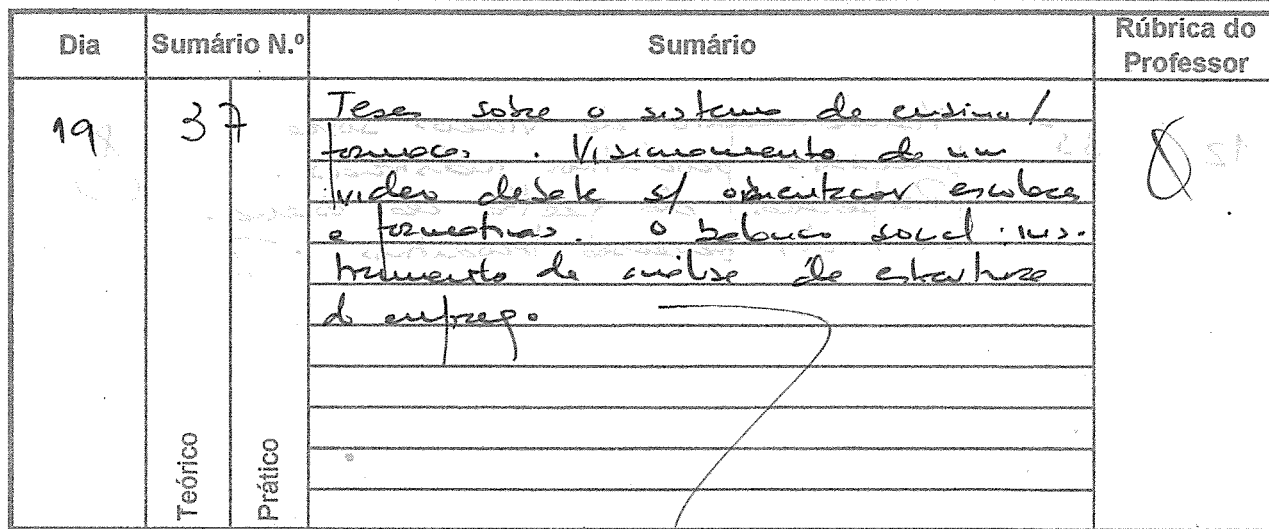 Dia
Sumário N.º
Sumário
Rúbrica do
Professor
19
37
Teses sobre o sistema de ensino /
formação. Visionamento de um
video debate s/ orientação escolares
e formativas. O balanço social: ins-
trumento de análise de estrutura
do emprego
Teórico
Prático